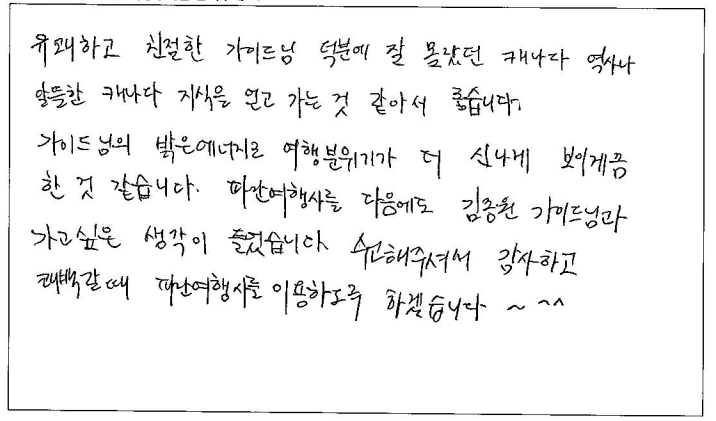 유쾌하고 친절한 가이드님 덕분에 잘 몰랐던 캐나다 역사나
알뜰한 캐나다 지식을 얻고 가는 것 같아서 좋습니다.
가이드님의 밝은에너지로 여행분위기가 더 신나게 보이게끔
한 것 같습니다. 파란여행사를 다음에도 김종원 가이드님과
가고싶은 생각이 들었습니다 수고해주셔서 감사하고
퀘백갈때 파란여행사를 이용하도록 하겠습니다 ~ ^^